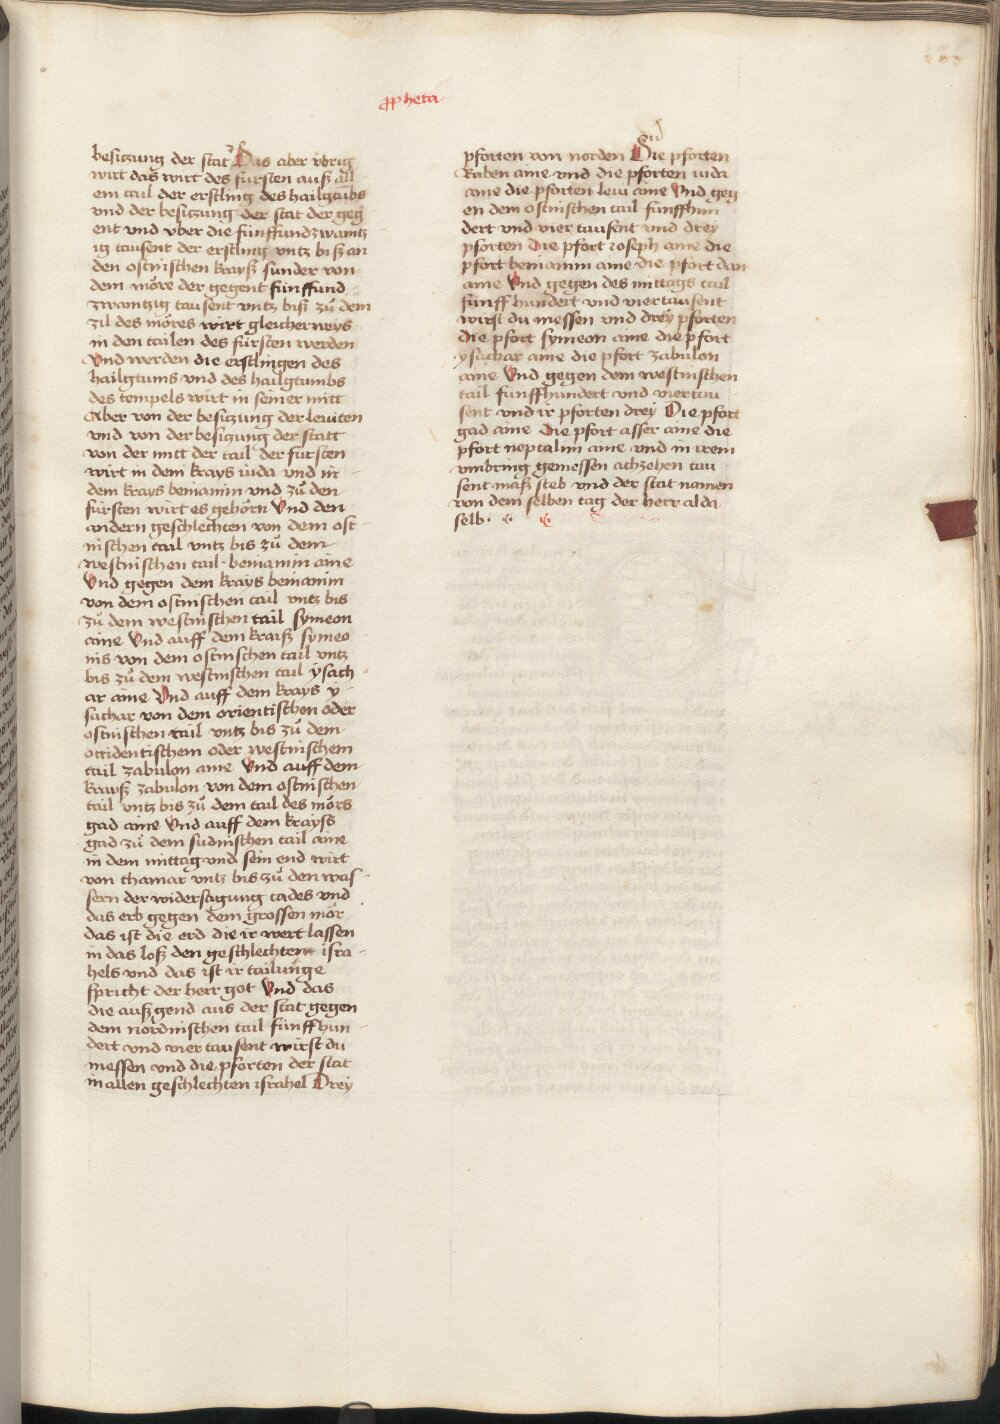 ppheta
besitzung der stat Das aber vbrig
wirt das wirt des fürsten auß all
em tail der erstling des hailgtūbs
vnd der besitzung der stat der geg
ent vnd vber die fünffundzwaintz
ig tausent der erstling vntz biß an
den ostnischen krayß sunder von
dem möre der gegent fünffund
zwaintzig tausent vntz biß zů dem
zil des möres wirt gleicherweys
in den tailen des fürsten werden
Vnd werden die erstlingen des
hailgtums vnd des hailgtumbs
des tempels wirt in seiner mitt
Aber von der besitzung der leuiten
vnd von der besitzung der statt
von der mitt der tail der fürsten
wirt in dem krays iuda vnd in
dem krays beniamin vnd zů den
fürsten wirt es gehörn Vnd den
andern geschlechten von dem ost
nischen tail vntz bis zů dem
westnischen tail beniamin aine
Vnd gegen dem krays beniamin
von dem ostnischen tail vntz bis
zů dem westnischen tail symeon
aine Vnd auff dem kraiß symeo
nis von dem ostnischen tail vntz
bis zů dem westnischen tail ysach
ar aine Vnd auff dem krays y
sachar von dem orientischen oder
ostnischen tail vntz bis zů dem
occidentischem oder westnischem
tail zabulon aine Vnd auff dem
krayß zabulon von dem ostnischen
tail vntz bis zů dem tail des mörs
gad aine Vnd auff dem krayss
gad zů dem sudnischen tail aine
in dem mittag vnd sein end wirt
von thamar vntz bis zů den was
sern der widersagung cades vnd
das erb gegen dem grossen mör
das ist die erd die ir wert lassen
in das loß den geschlechten isra
hels vnd das ist ir tailunge
spricht der herr got Vnd das
die außgend aus der stat gegen
dem nordnischen tail fünffhun
dert vnd vier tausent wirst du
messen vnd die pforten der stat
in allen geschlechten israhel Drey
pforten von norden Die pforten
Raben aine vnd die pforten iuda
aine die pforten leui aine Vnd geg
en dem ostnischen tail fünffhun
dert vnd vier tausent vnd drey
pforten Die pfort ioseph aine die
pfort beniamin aine die pfort dan
aine Vnd gegen des mittags tail
fünff hundert vnd viertausent
wirst du messen vnd drey pforten
die pfort symeon aine die pfort
ysachar aine die pfort zabulon
aine Vnd gegen dem westnischen
tail fünffhundert vnd viertau
sent vnd ir pforten drey Die pfort
gad aine Die pfort asser aine die
pfort neptalim aine vnd in irem
vmbring gemessen achzehen tau
sent maß steb vnd der stat namen
von dem selben tag der herr alda
selb